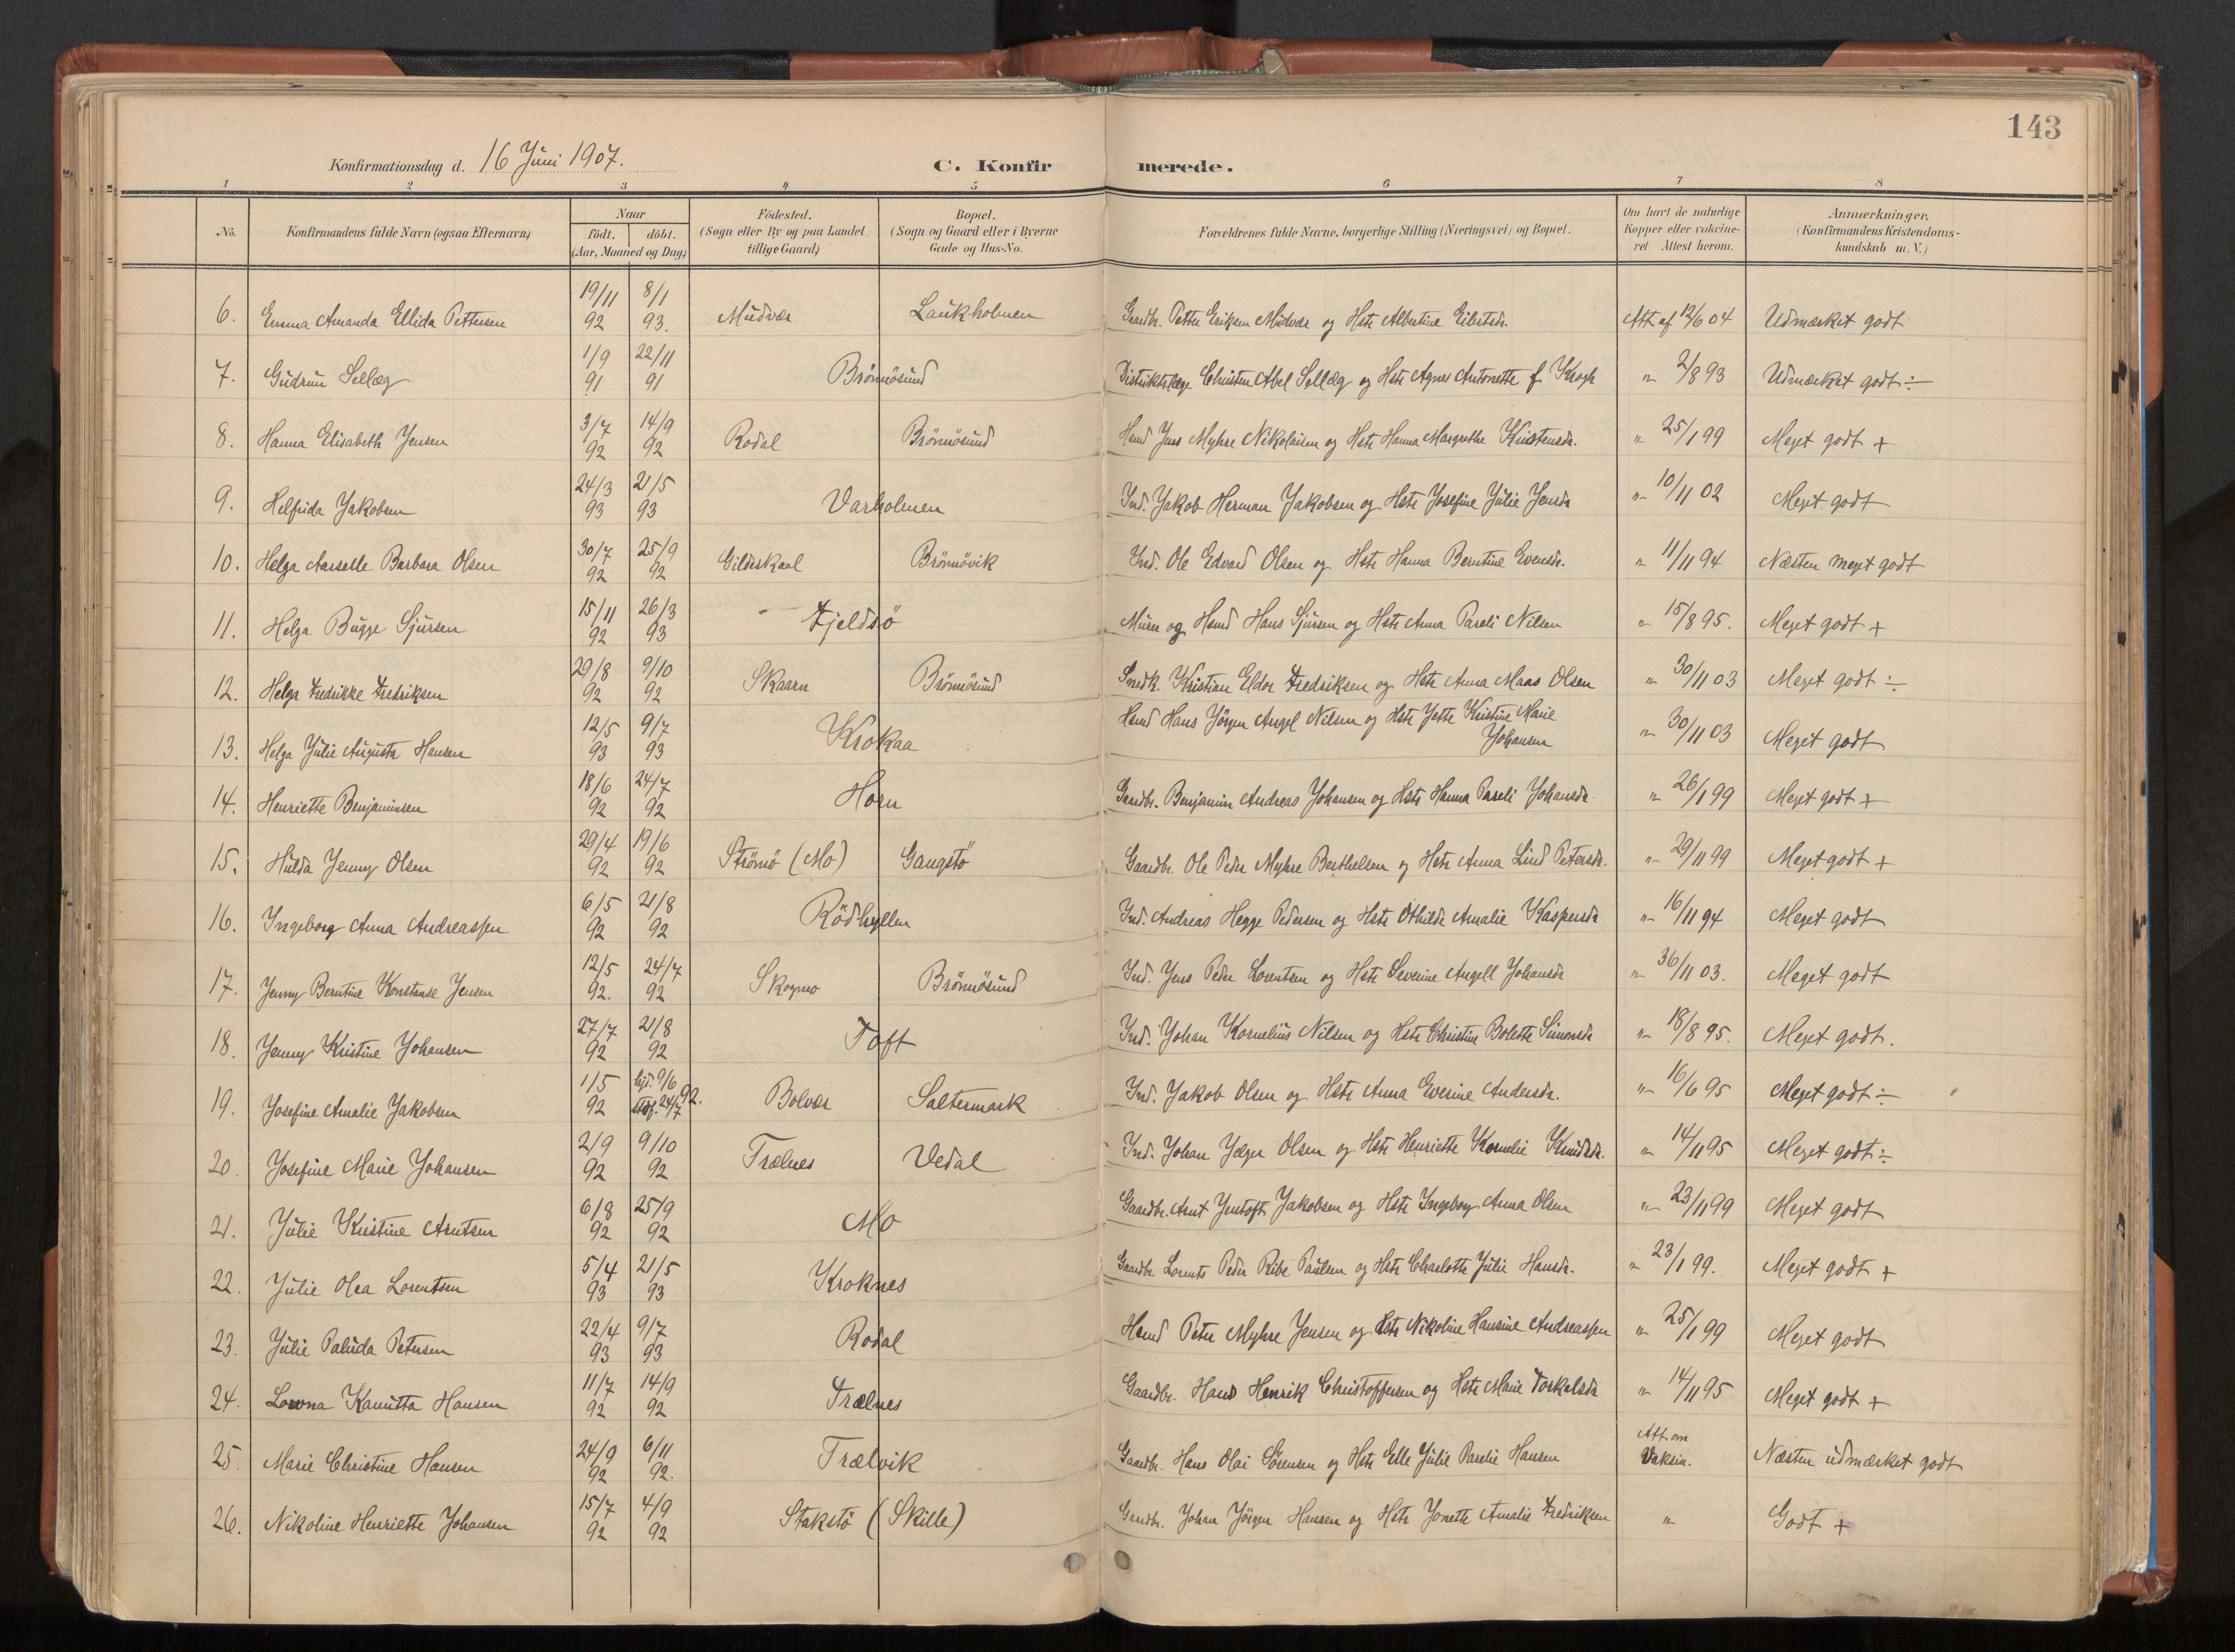 143
Konfirmationsdag d. 16 Juni 1907.
C. Konfirmerede.
1 2 3 4 5 6 7 8
No. Konfirmandens fulde Navn (ogsaa Efternavn) Naar födt. döbt. (Aar, Maaned og Dag) Födested. (Sogn eller By og paa Landet tillige Gaard) Bopæl. (Sogn og Gaard eller i Byerne Gade og Hus-No. Forældrenes fulde Navne, borgerlige Stilling (Næringsvei) og Bopæl. Om havt de naturlige Kopper eller vakcineret Attest herom. Anmærkninger. (Konfirmandens Kristendomskundskab m. V.)
6. Emma Amanda Ellida Pettersen 19/11 92 8/1 93. Mudvær Laukholmen Gaardbr. Petter Eriksen Mudvær og Hstr Albertine Eilertsdr. Att af 12/6 04 Udmærket godt
7. Gudrun Sellæg 1/9 91 22/11 91 Brönnösund Distriktslæge Christen Abel Sellæg og Hstr Agnes Antonette f Krogh " 2/8 93 Udmærket godt ÷
8. Hanna Elisabeth Jensen 3/7 92 14/9 92 Rodal Brönnösund Hsmd Jens Myhre Nikolaisen og Hstr Hanna Margrethe Kristensdr. " 25/1 99 Meget godt +
9. Helfrida Jakobsen 24/3 93 21/5 93 Varholmen Ind. Jakob Herman Jakobsen og Hstr Josefine Julie Jensdr " 10/11 02 Meget godt
10. Helga Aarselle Barbara Olsen 30/7 92 25/9 92 Gildeskaal Brönnövik Ind. Ole Edvard Olsen og Hstr Hanna Berntine Evensdr. " 11/11 94 Næsten meget godt
11. Helga Bugge Sjursen 15/11 92 26/3 93 Fjeldsö Murer og Hsmd Hans Sjursen og Hstr Anna Pareli Nilsen " 15/8 95. Meget godt +
12. Helga Fredrikke Fredriksen 29/8 92 9/10 92 Skaarn Brönnösund Snedk. Kristian Eldor Fredriksen og Hstr Anna Maas Olsen " 30/11 03 Meget godt ÷
13. Helga Julie Augusta Hansen 12/5 93 9/7 93 Krokaa Hsmd Hans Jörgen Angel Nilsen og Hstr Jette Kristine Marie Johansen " 30/11 03 Meget godt
14. Henriette Benjaminsen 18/6 92 24/7 92 Horn Gaardbr. Benjamin Andreas Johansen og Hstr Hanna Pareli Johansdr " 26/1 99 Meget godt +
15. Hulda Jenny Olsen 29/4 92 19/6 92 Strömö (Mo) Gangstö Gaardbr. Ole Peder Myhre Berthelsen og Hstr Anna Lind Petersdr. " 29/11 99 Meget godt +
16. Ingeborg Anna Andreassen 6/5 92 21/8 92 Rödhyllen Ind. Andreas Hegge Pedersen og Hstr Othilde Amalie Kaspersdr " 16/11 94 Meget godt
17. Jenny Berntine Konstanse Jensen 12/5 92. 24/7 92 Skogmo Brönnösund Ind. Jens Peder Lorentsen og Hstr Severine Angell Johansdr " 30/11 03. Meget godt
18. Jenny Kristine Johansen 27/7 92 21/8 92 Toft Ind. Johan Kornelius Nilsen og Hstr Christine Bolette Simonsdr " 18/8 95. Meget godt.
19. Josefine Amalie Jakobsen 1/5 92 hjd. 9/6 stdf. 24/7 92. Bolvær Saltermark Ind. Jakob Olsen og Hstr Anna Everine Andersdr. " 16/6 95 Meget godt ÷
20. Josefine Marie Johansen 2/9 92 9/10 92 Trælnes Vedal Ind. Johan Jelger Olsen og Hstr Henriette Kornelie Knudsdr. " 14/11 95 Meget godt ÷
21. Julie Kristine Arntsen 6/8 92 25/9 92 Mo Gaardbr. Arnt Jentoft Jakobsen og Hstr Ingeborg Anna Olsen " 23/11 99 Meget godt
22. Julie Olea Lorentsen 5/4 93 21/5 93 Kroknes Gaardbr. Lorents Peder Ribe Paulsen og Hstr Charlotte Julie Hansdr. " 23/1 99. Meget godt +
23. Julie Paluda Petersen 22/4 93 9/7 93 Rodal Hsmd Peter Myhre Jensen og Hstr Nikoline Hansine Andreassen " 25/1 99 Meget godt
24. Lovna Kanutta Hansen 11/7 92 14/9 92 Trælnes Gaardbr. Hans Henrik Christoffersen og Hstr Marie Torkelsdr " 14/11 95 Meget godt +
25. Marie Christine Hansen 24/9 92 6/11 92. Trælvik Gaardbr. Hans Olai Sörensen og Hstr Elle Julie Parelie Hansen Att om Vaksin. Næsten udmærket godt
26. Nikoline Henriette Johansen 15/7 92 4/9 92 Stakstö (Skille) Gaardbr. Johan Jörgen Hansen og Hstr Jonette Amalie Fredriksen " Godt +